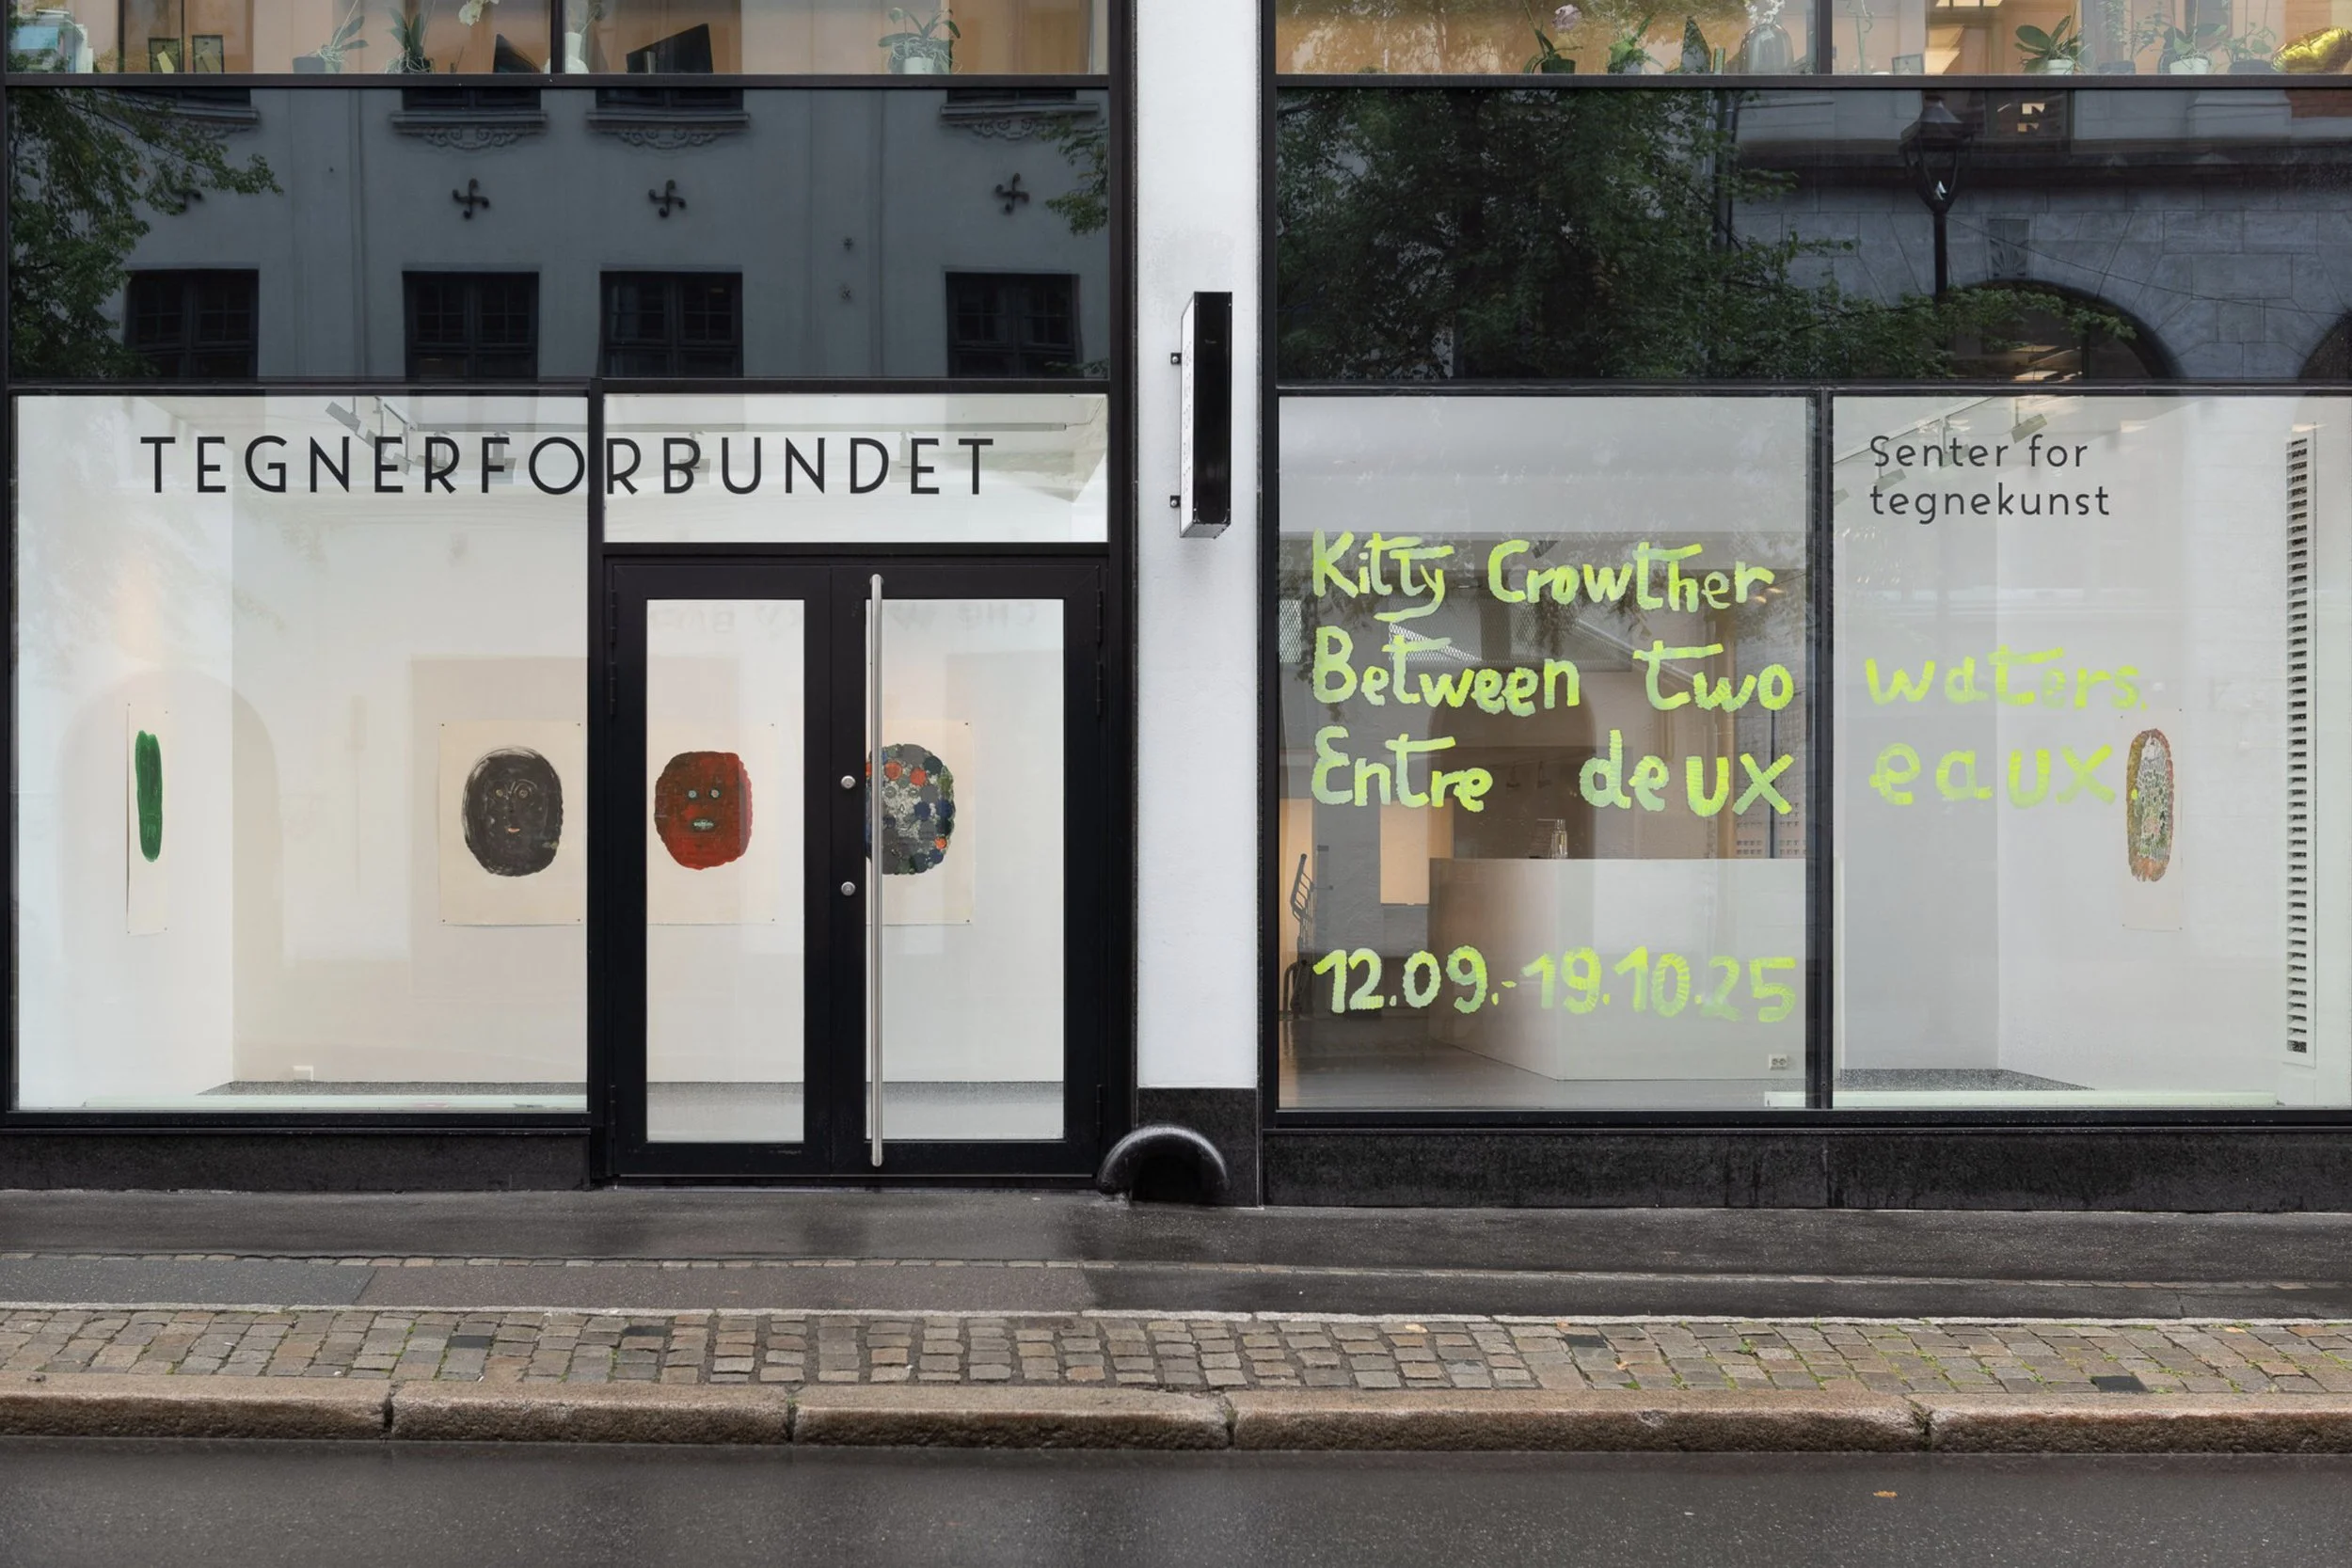 TEGNERFORBUNDET
Senter for
tegnekunst
Kitty Crowther
Between two waters.
Entre deux eaux.
12.09.-19.10.25